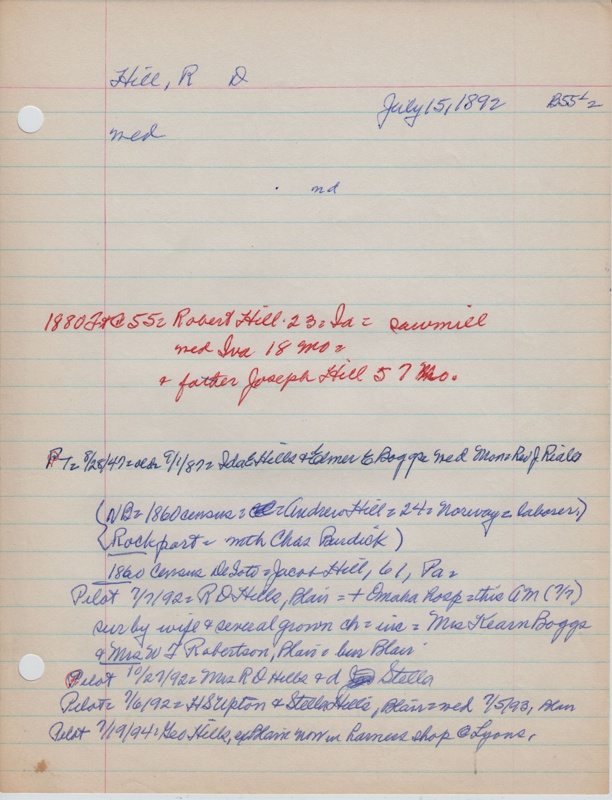 Hill, R D
July 15, 1892 B55 1/2
med
nd
1880 F+C 55 = Robert Hill. 23 = Ia = sawmill
med Iva 18 Mo =
+ father Joseph Hill 57 Mo.
PT = 8/28/47 = 9/1/87 = Ida E Hills & Elmer E Boggs med Mon = Rev J. Riale
(NB = 1860 census = Andrew Hill = 24 = Norway = laborer,)
(Rockport = with Chas Burdick)
1860 Census DeSoto = Jacob Hill, 61, Pa =
Pilot 7/7/92 = R D Hills, Blair = + Omaha hosp = this AM (7/7)
sur by wife & several grown ch = inc = Mrs Kearn Boggs
& Mrs W F Robertson, Blair = bur Blair
Pilot 10/27/92 = Mrs R D Hills & d Stella
Pilot = 7/6/92 = H S Upton & Stella Hills, Blair = med 7/5/93,
Pilot 7/19/94: Geo Hills, ex Blair now in harness shop @ Lyons.